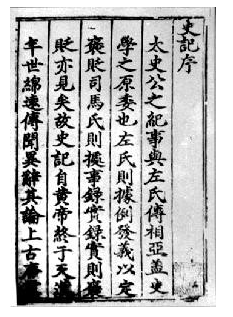 史記序
太史公之紀事與左氏傳相亞盖史
學之原委也左氏則據例發義以定
褒貶司馬氏則據事錄實錄實則褒
貶亦見矣故史記自黃帝終于天漢
年世綿遠傳聞異辭其論上古